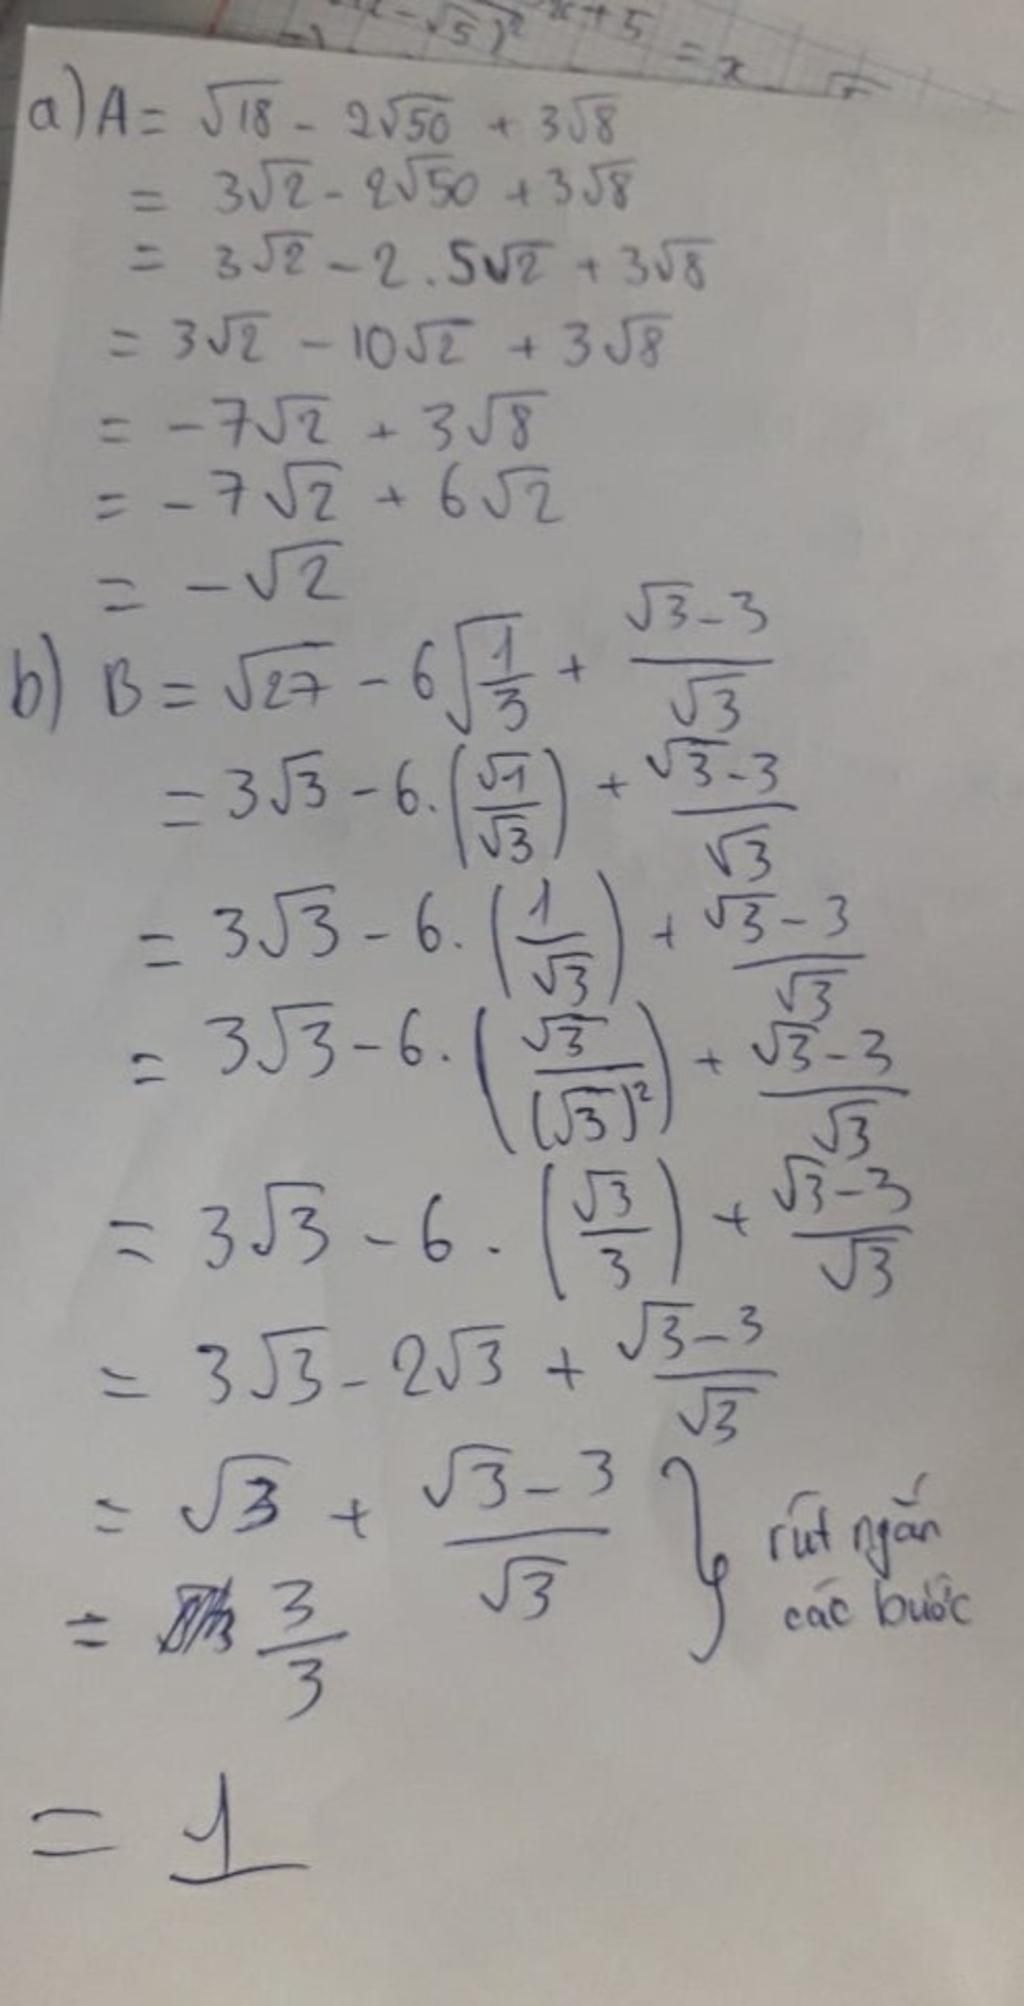 x + 5
√5)²
= x
a) A = √18 - 2√50 + 3√8
= 3√2 - 2√50 + 3√8
= 3√2 - 2 . 5√2 + 3√8
= 3√2 - 10√2 + 3√8
= -7√2 + 3√8
= -7√2 + 6√2
= -√2
b) B = √27 - 6√(1/3) + (√3 - 3)/√3
= 3√3 - 6.(√1/√3) + (√3 - 3)/√3
= 3√3 - 6.(1/√3) + (√3 - 3)/√3
= 3√3 - 6.(√3/(√3)²) + (√3 - 3)/√3
= 3√3 - 6 . (√3/3) + (√3 - 3)/√3
= 3√3 - 2√3 + (√3 - 3)/√3
= √3 + (√3 - 3)/√3 } rút ngắn
= 3/3 các bước
= 1